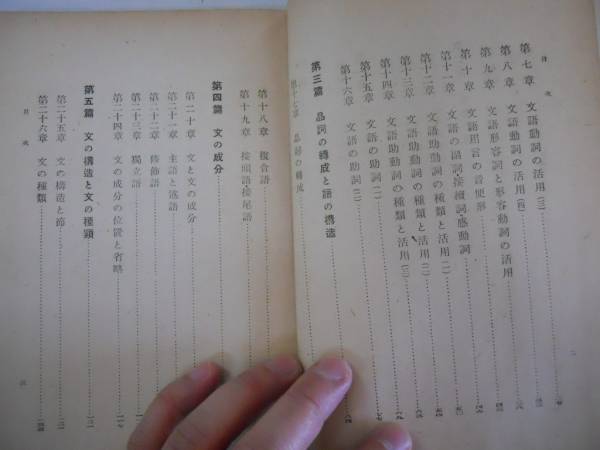 目次
第七章 文語動詞の活用(三)
第八章 文語動詞の活用(四)
第九章 文語形容詞と形容動詞の活用
第十章 文語用言の音便形
第十一章 文語の副詞・接續詞・感動詞
第十二章 文語助動詞の種類と活用(一)
第十三章 文語助動詞の種類と活用(二)
第十四章 文語助動詞の種類と活用(三)
第十五章 文語の助詞(一)
第十六章 文語の助詞(二)
第三篇 品詞の轉成と語の構造
第十七章 品詞の轉成
第十八章 複合語
第十九章 接頭語・接尾語
第四篇 文の成分
第二十章 文と文の成分
第二十一章 主語と述語
第二十二章 修飾語
第二十三章 獨立語
第二十四章 文の成分の位置と省略
第五篇 文の構造と文の種類
第二十五章 文の構造と節
第二十六章 文の種類
目次